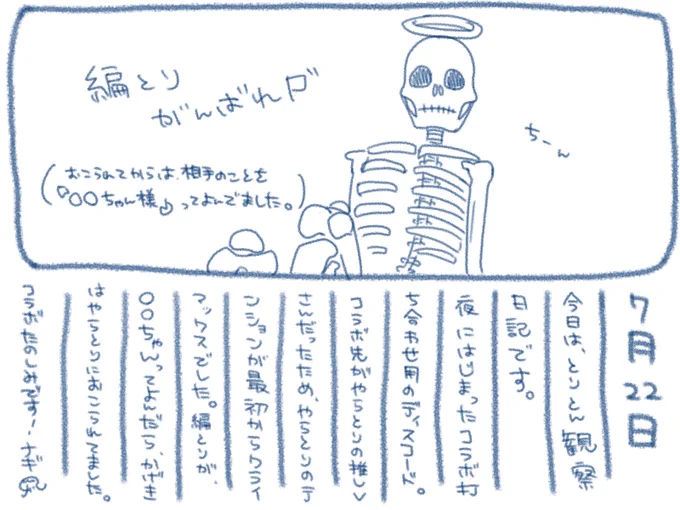 編とり
がんばれ〜
ちーん
(おこられてからは、相手のことを
『〇〇ちゃん様』ってよんでました。)
7月22日
今日は、とりとん観察
日記です。
夜にはじまったコラボ打
ち合わせ用のディスコード。
コラボ先がやらとりの推しV
さんだったため、やらとりのテ
ンションが最初からクライ
マックスでした。編とりが、
〇〇ちゃんってよんだら、かげき
はやらとりにおこられてました。
コラボたのしみです！ナギ